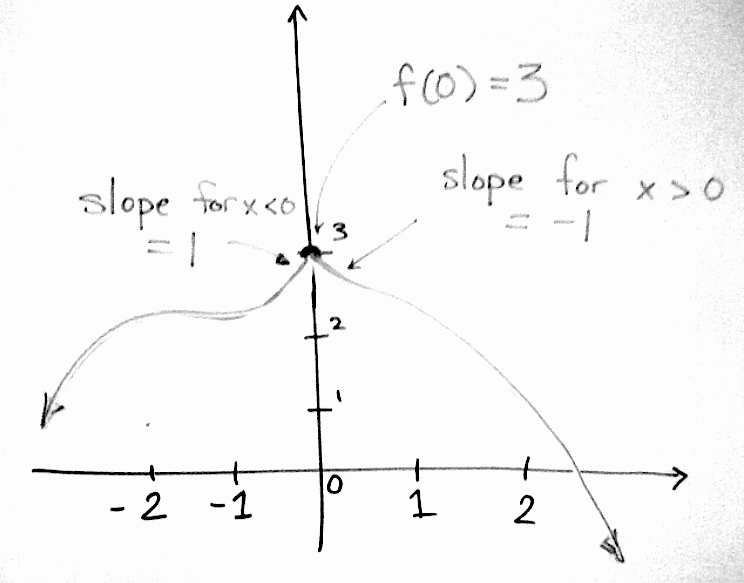 f(0) = 3
slope for x > 0
= -1
slope for x < 0
= 1
3
2
1
-2 -1 0 1 2